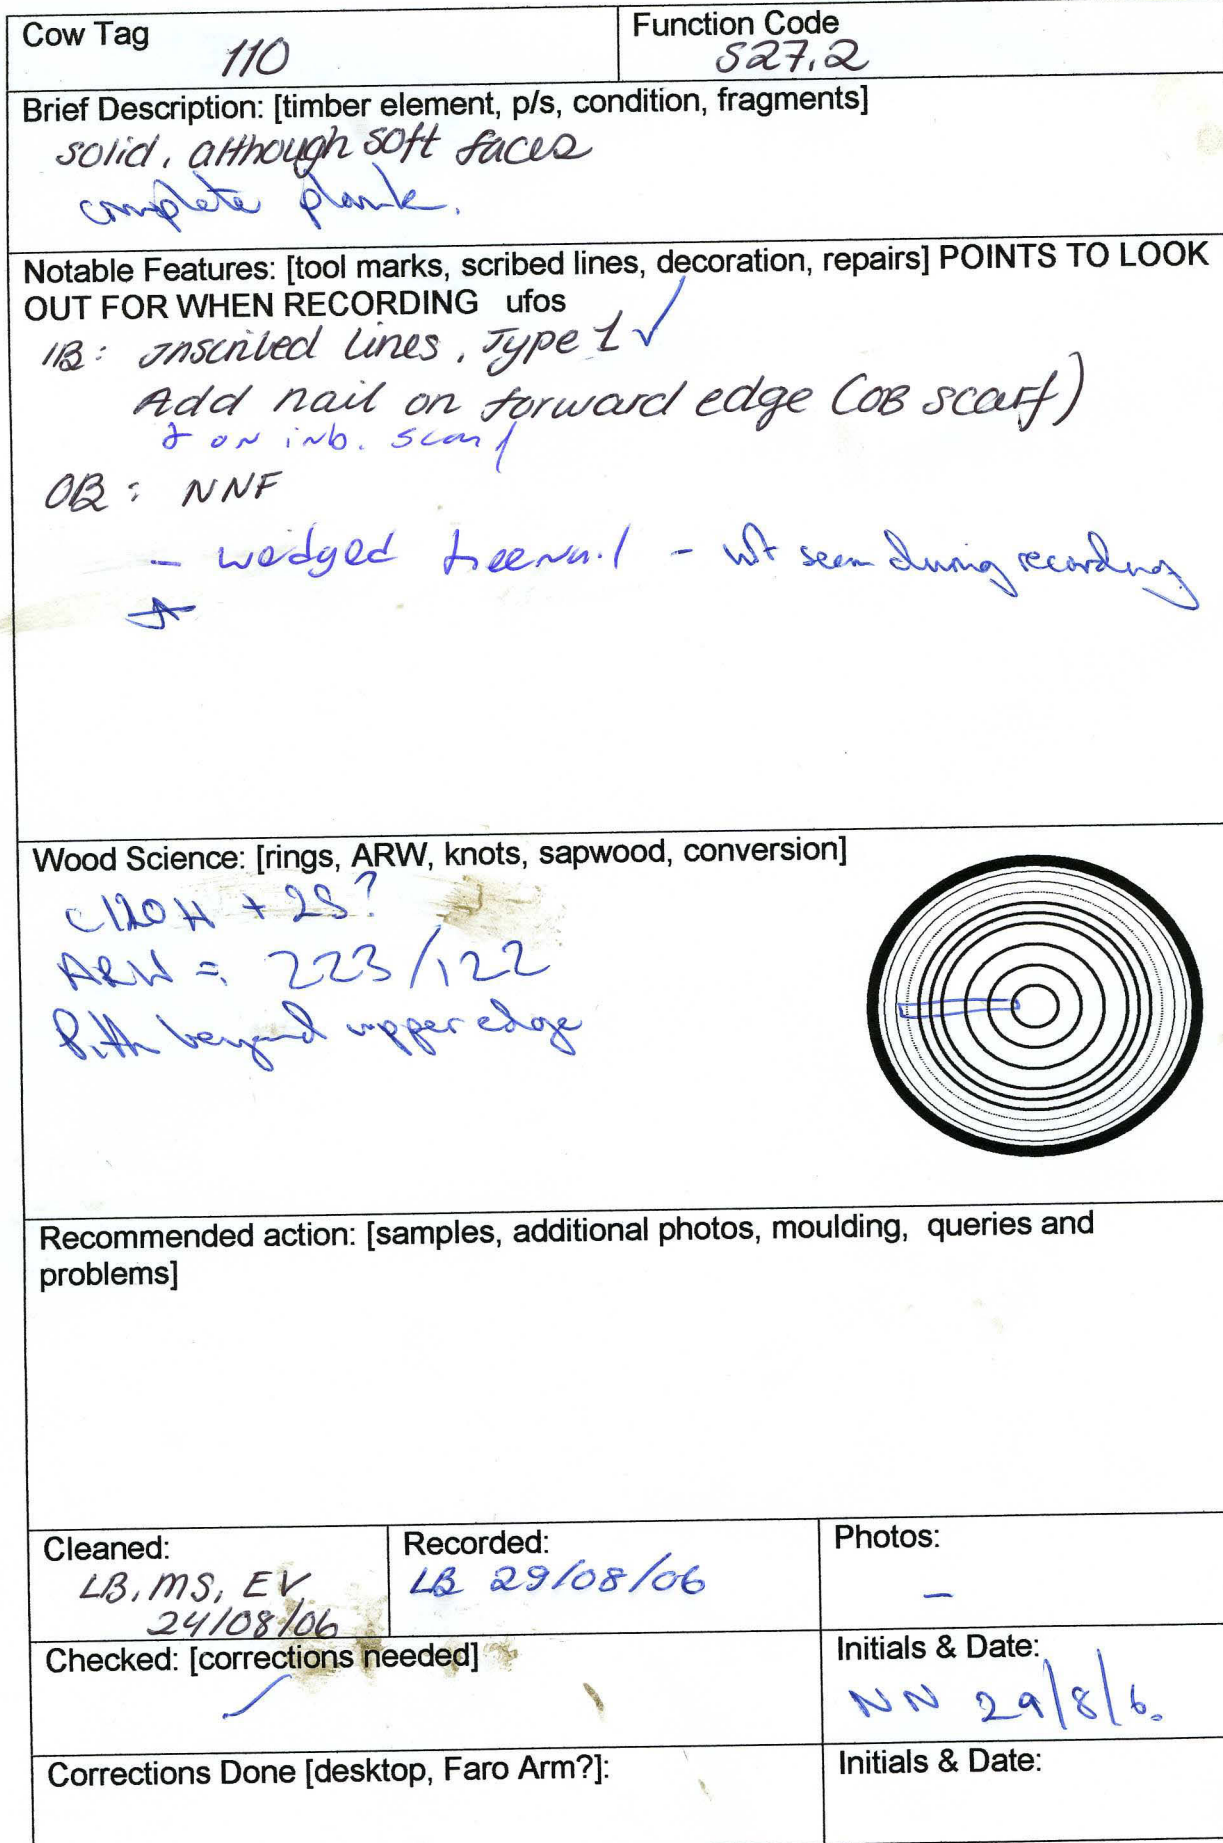 Cow Tag
110
Function Code
S27.2
Brief Description: [timber element, p/s, condition, fragments]
solid, although soft faces
complete plank.
Notable Features: [tool marks, scribed lines, decoration, repairs] POINTS TO LOOK
OUT FOR WHEN RECORDING ufos
IB: Inscribed lines, Type 1 ✓
Add nail on forward edge (OB scarf)
+ on inb. scarf
OB: NNF
- wedged treenail - not seen during recording
Wood Science: [rings, ARW, knots, sapwood, conversion]
c120H + 2S?
ARW = 223/122
Pith beyond upper edge
Recommended action: [samples, additional photos, moulding, queries and
problems]
Cleaned:
LB, MS, EV
24/08/06
Recorded:
LB 29/08/06
Photos:
-
Checked: [corrections needed]
✓
Initials & Date:
NN 29/8/6.
Corrections Done [desktop, Faro Arm?]:
Initials & Date: